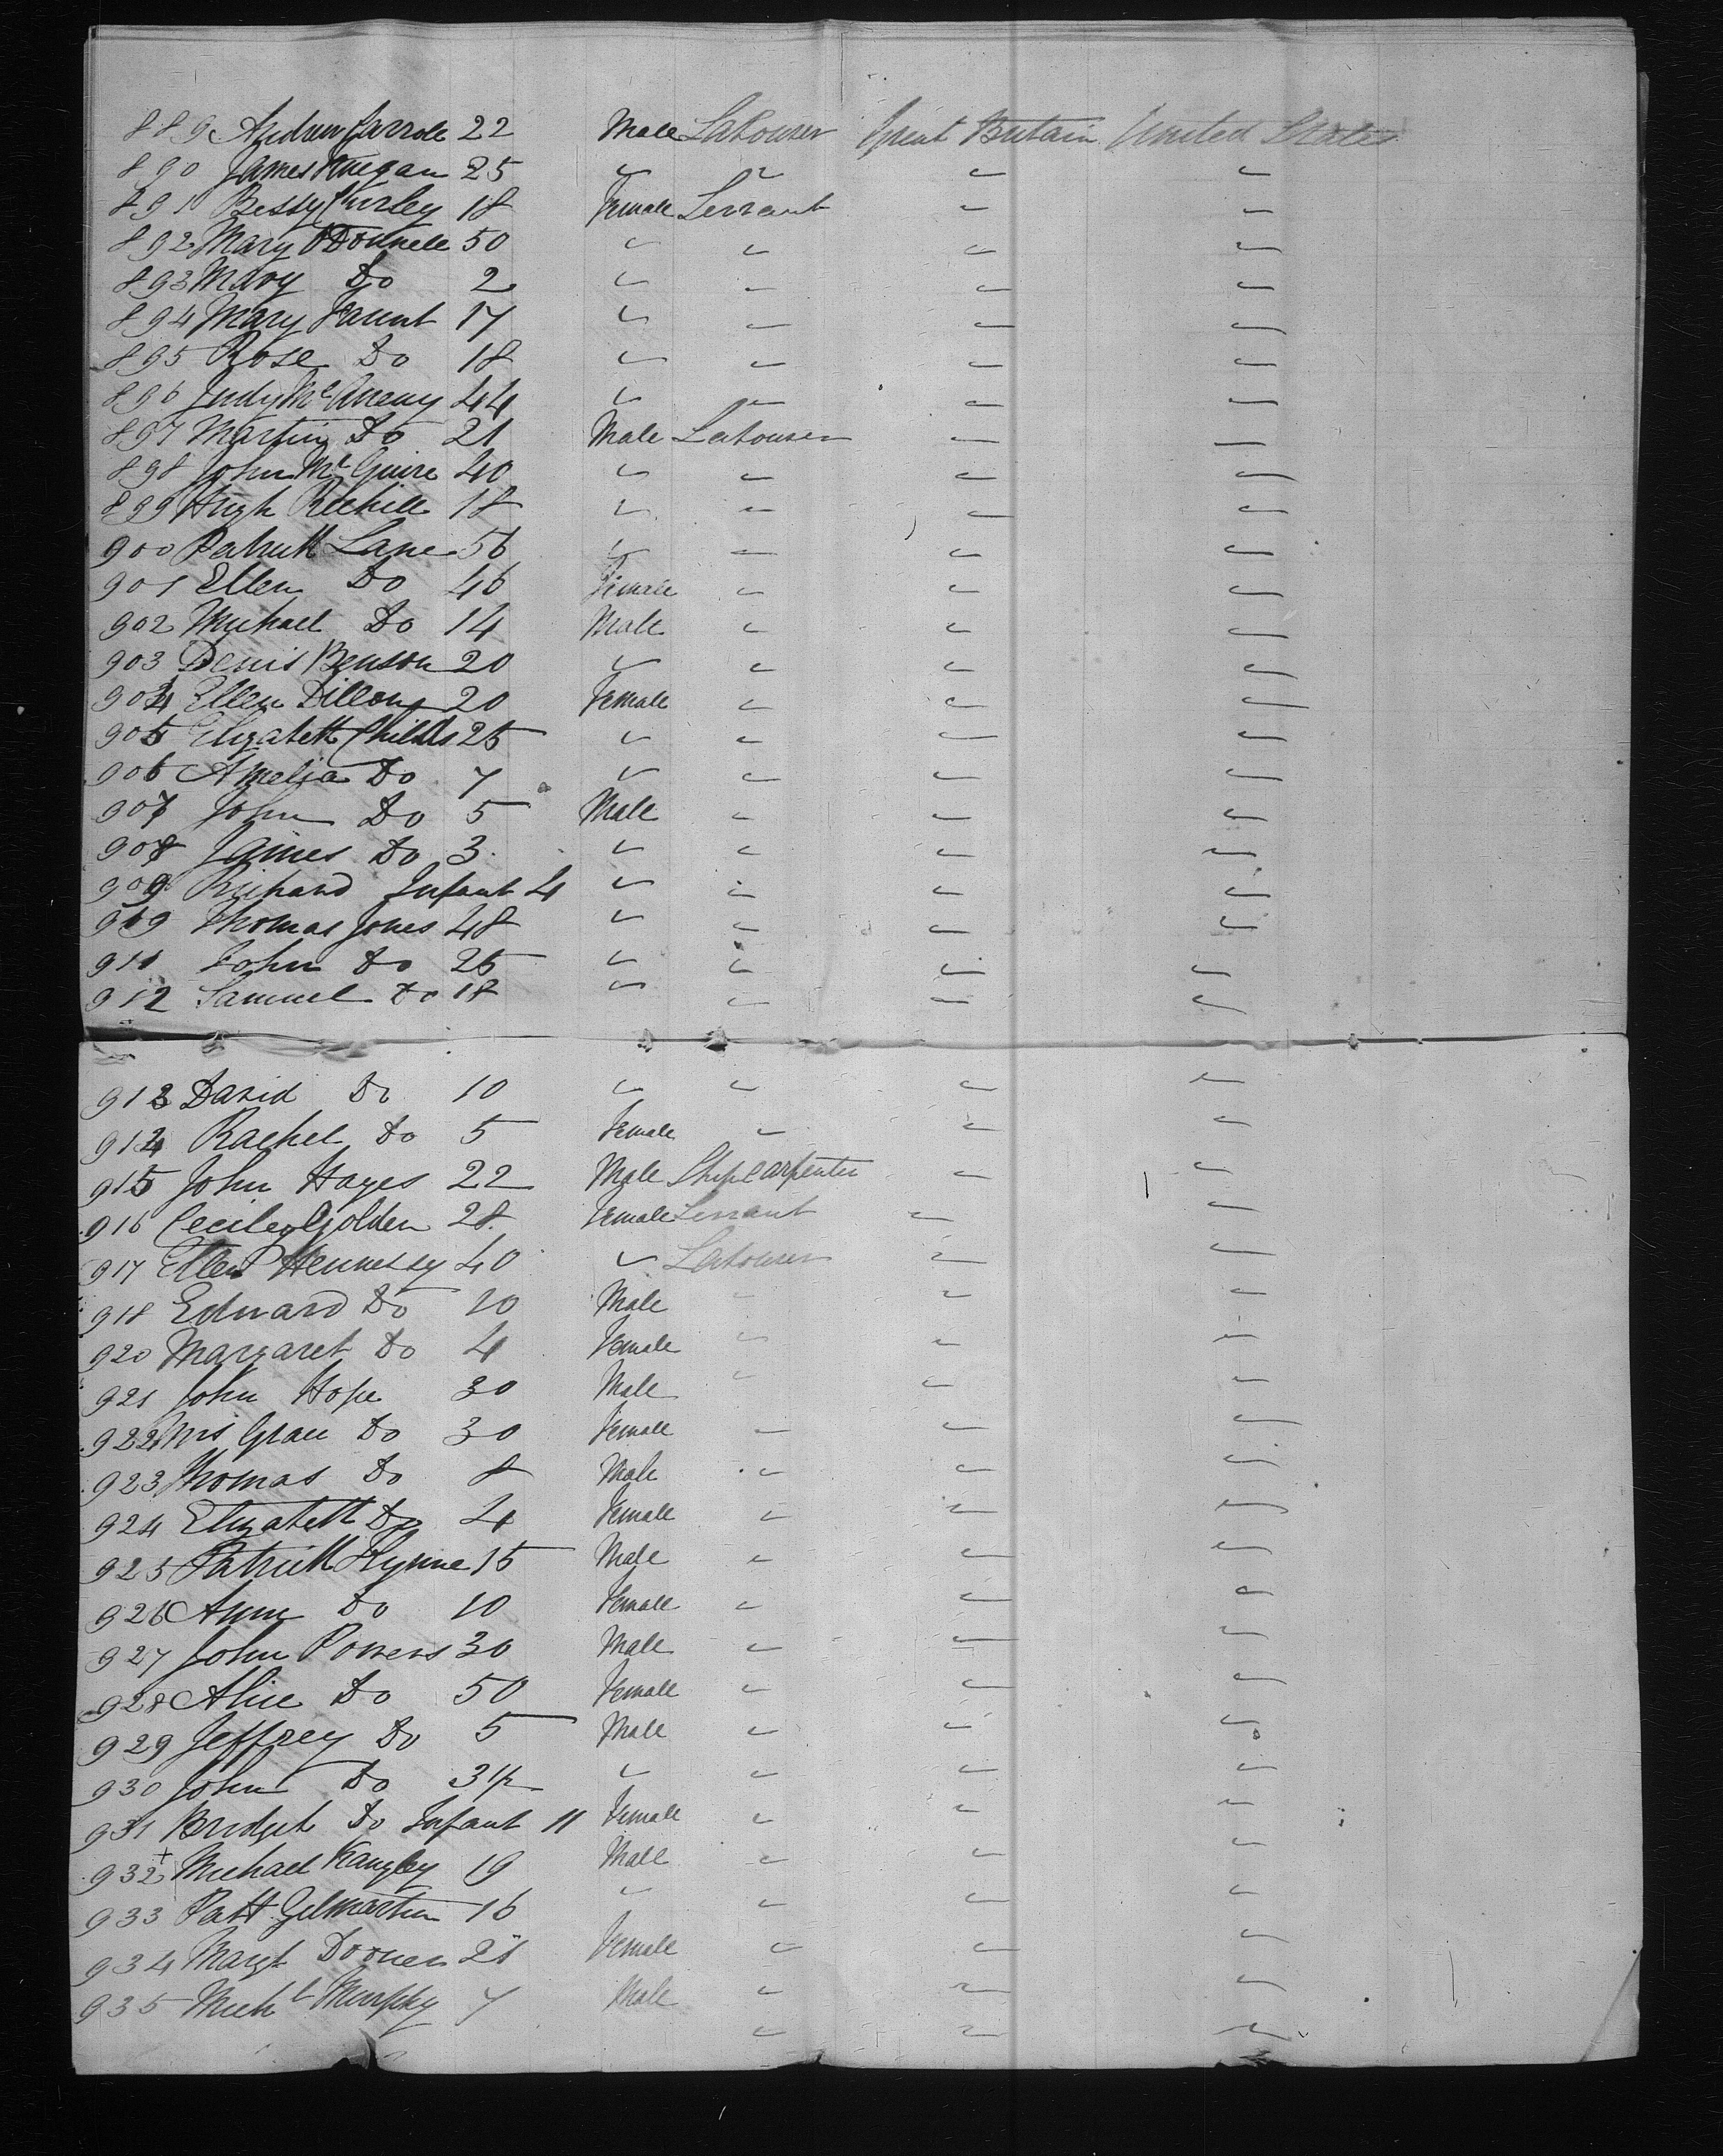 889 Andrew Carroll 22 Male Labourer Great Britain United States
890 James Keegan 25 " " " "
891 Bessy Curley 18 Female Servant " "
892 Mary O'Donnell 50 " " " "
893 Mary Do 2 " " " "
894 Mary Faunt 17 " " " "
895 Rose Do 18 " " " "
896 Judy McAneny 44 " " " "
897 Martin Do 21 Male Labourer " "
898 John McGuire 40 " " " "
899 Hugh Reehill 18 " " " "
900 Patrick Lane 56 " " " "
901 Ellen Do 46 Female " " "
902 Michael Do 14 Male " " "
903 Denis Benson 20 " " " "
904 Ellen Dillon 20 Female " " "
905 Elizabeth Childs 25 " " " "
906 Amelia Do 7 " " " "
907 John Do 5 Male " " "
908 James Do 3 " " " "
909 Richard Infant 4 " " " "
910 Thomas Jones 48 " " " "
911 John Do 25 " " " "
912 Samuel Do 18 " " " "
913 David Do 10 " " " "
914 Rachel Do 5 Female " " "
915 John Hayes 22 Male Ship Carpenter " "
916 Cecily Golden 28 Female Servant " "
917 Ellen Hennessy 40 " Labourer " "
918 Edward Do 10 Male " " "
920 Margaret Do 4 Female " " "
921 John Hope 30 Male " " "
922 Mrs Grace Do 30 Female " " "
923 Thomas Do 8 Male " " "
924 Elizabeth Do 4 Female " " "
925 Patrick Flynne 15 Male " " "
926 Ann Do 10 Female " " "
927 John Powers 30 Male " " "
928 Alice Do 50 Female " " "
929 Jeffrey Do 5 Male " " "
930 John Do 3 " " " "
931 Bridget Do Infant 11 Female " " "
932 + Michael Kangley 19 Male " " "
933 Patt Gilmartin 16 " " " "
934 Margt Dooner 21 Female " " "
935 Michl Murphy 7 Male " " "
" " "